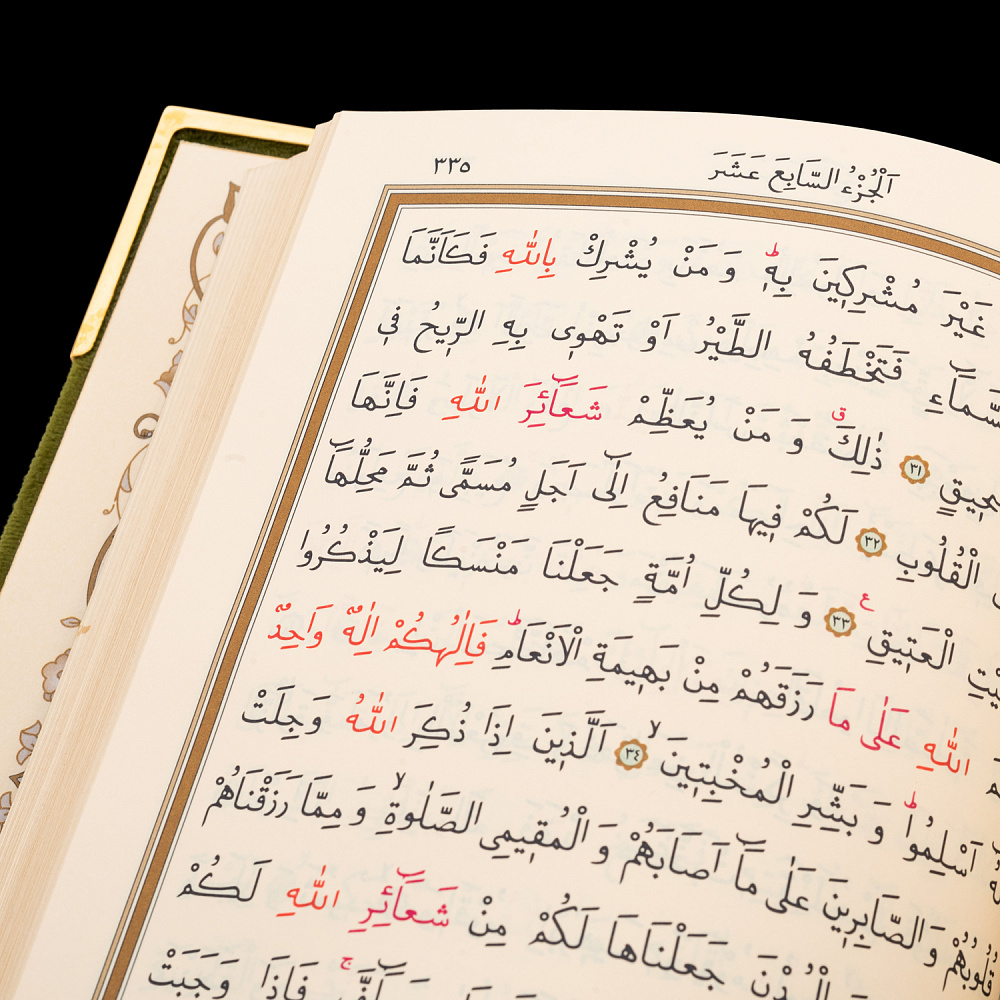 ٣٣٥
اَلْجُزْءُ السَّابِعَ عَشَرَ
غَيْرَ مُشْرِكٖينَ بِهٖؕ وَمَنْ يُشْرِكْ بِاللّٰهِ فَكَاَنَّمَا
فَتَخْطَفُهُ الطَّيْرُ اَوْ تَهْوٖى بِهِ الرّٖيحُ فٖي
﴿٣١﴾ ذٰلِكَۗ وَمَنْ يُعَظِّمْ شَعَٓائِرَ اللّٰهِ فَاِنَّهَا
الْقُلُوبِ ﴿٣٢﴾ لَكُمْ فٖيهَا مَنَافِعُ اِلٰٓى اَجَلٍ مُسَمًّى ثُمَّ مَحِلُّهَٓا
الْعَتٖيقِࣖ ﴿٣٣﴾ وَلِكُلِّ اُمَّةٍ جَعَلْنَا مَنْسَكًا لِيَذْكُرُوا
اللّٰهِ عَلٰى مَا رَزَقَهُمْ مِنْ بَهٖيمَةِ الْاَنْعَامِؕ فَاِلٰهُكُمْ اِلٰهٌ وَاحِدٌ
اَسْلِمُواؕ وَبَشِّرِ الْمُخْبِتٖينَۙ ﴿٣٤﴾ اَلَّذٖينَ اِذَا ذُكِرَ اللّٰهُ وَجِلَتْ
قُلُوبُهُمْ وَالصَّابِرٖينَ عَلٰى مَٓا اَصَابَهُمْ وَالْمُقٖيمِي الصَّلٰوةِۙ وَمِمَّا رَزَقْنَاهُمْ
جَعَلْنَاهَا لَكُمْ مِنْ شَعَٓائِرِ اللّٰهِ لَكُمْ
فَاِذَا وَجَبَتْ